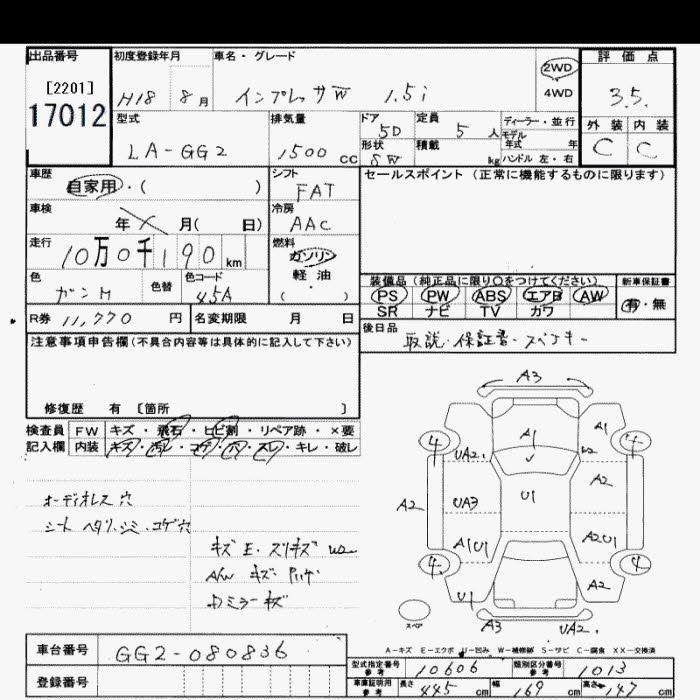 出品番号 初度登録年月 車名・グレード 2WD 評価点
[2201] 17012 H18 8月 インプレッサW 1.5i 4WD 3.5.
型式 排気量 ドア 5D 定員 5人 ディーラー・並行 外装 内装
LA-GG2 1500 CC 形状 SW 積載 kg モデル年式 年 ハンドル 左・右 C C
車歴 自家用・( ) シフト FAT セールスポイント(正常に機能するものに限ります)
車検 年 月( 日) 冷房 AAC
走行 10万0千190km 燃料 ガソリン 軽油 ( )
色 ガンM 色替 色コード 45A
装備品(純正品に限り○をつけてください) 新車保証書
PS PW ABS エアB AW 有・無
SR ナビ TV カワ
R券 11,770円 名変期限 月 日 後日品 取説・保証書・スペアキー
注意事項申告欄(不具合内容等は具体的に記入して下さい)
修復歴 有 [箇所 ]
検査員 FW キズ・飛石・ヒビ割・リペア跡・×要
記入欄 内装 キズ・汚れ・コゲ・穴・スレ・キレ・破レ
オーディオレス穴
シート ヘタリ、シミ・コゲ穴
キズ E・スリキズ W2
A/W キズ
ミラー キズ
A3
A1 A1
4 4
UA2 W2
A2
A2 UA3 U1
A1U1 A2U1 A2
4 4
A2
U1
スペア A3 UA2
A-キズ E-エクボ U-凹み W-補修跡 S-サビ C-腐食 XX-交換済
車台番号 GG2-080836
登録番号
型式指定番号 参考 10606 類別区分番号 参考 1013
車庫証明用 参考 長さ 445cm 幅 169cm 高さ 147cm